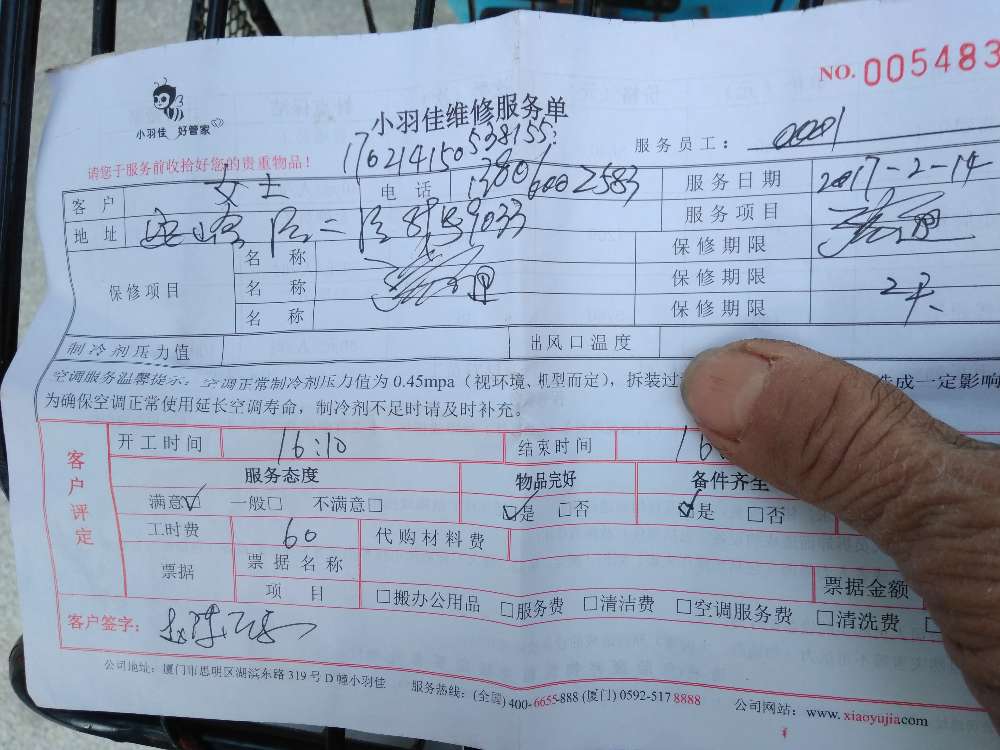 NO. 005483
小羽佳 好管家
小羽佳维修服务单
服务员工：
17621415053 8155
请您于服务前收拾好您的贵重物品！
客户 女士 电话 13806002583 服务日期 2017-2-14
地址 9033 服务项目
保修项目 名称 保修期限
名称 保修期限
名称 保修期限
制冷剂压力值 出风口温度
空调服务温馨提示：空调正常制冷剂压力值为 0.45mpa（视环境、机型而定），拆装过 造成一定影响
为确保空调正常使用延长空调寿命，制冷剂不足时请及时补充。
客户评定
开工时间 16:10 结束时间 16:
服务态度 物品完好 备件齐全
满意☑ 一般□ 不满意□ ☑是 □否 ☑是 □否
工时费 60 代购材料费
票据 票据名称 票据金额
项目 □搬办公用品 □服务费 □清洁费 □空调服务费 □清洗费 □
客户签字：
公司地址：厦门市思明区湖滨东路 319 号 D 幢小羽佳 服务热线：(全国) 400-6655-888 (厦门) 0592-517 8888 公司网站：www.xiaoyujia.com